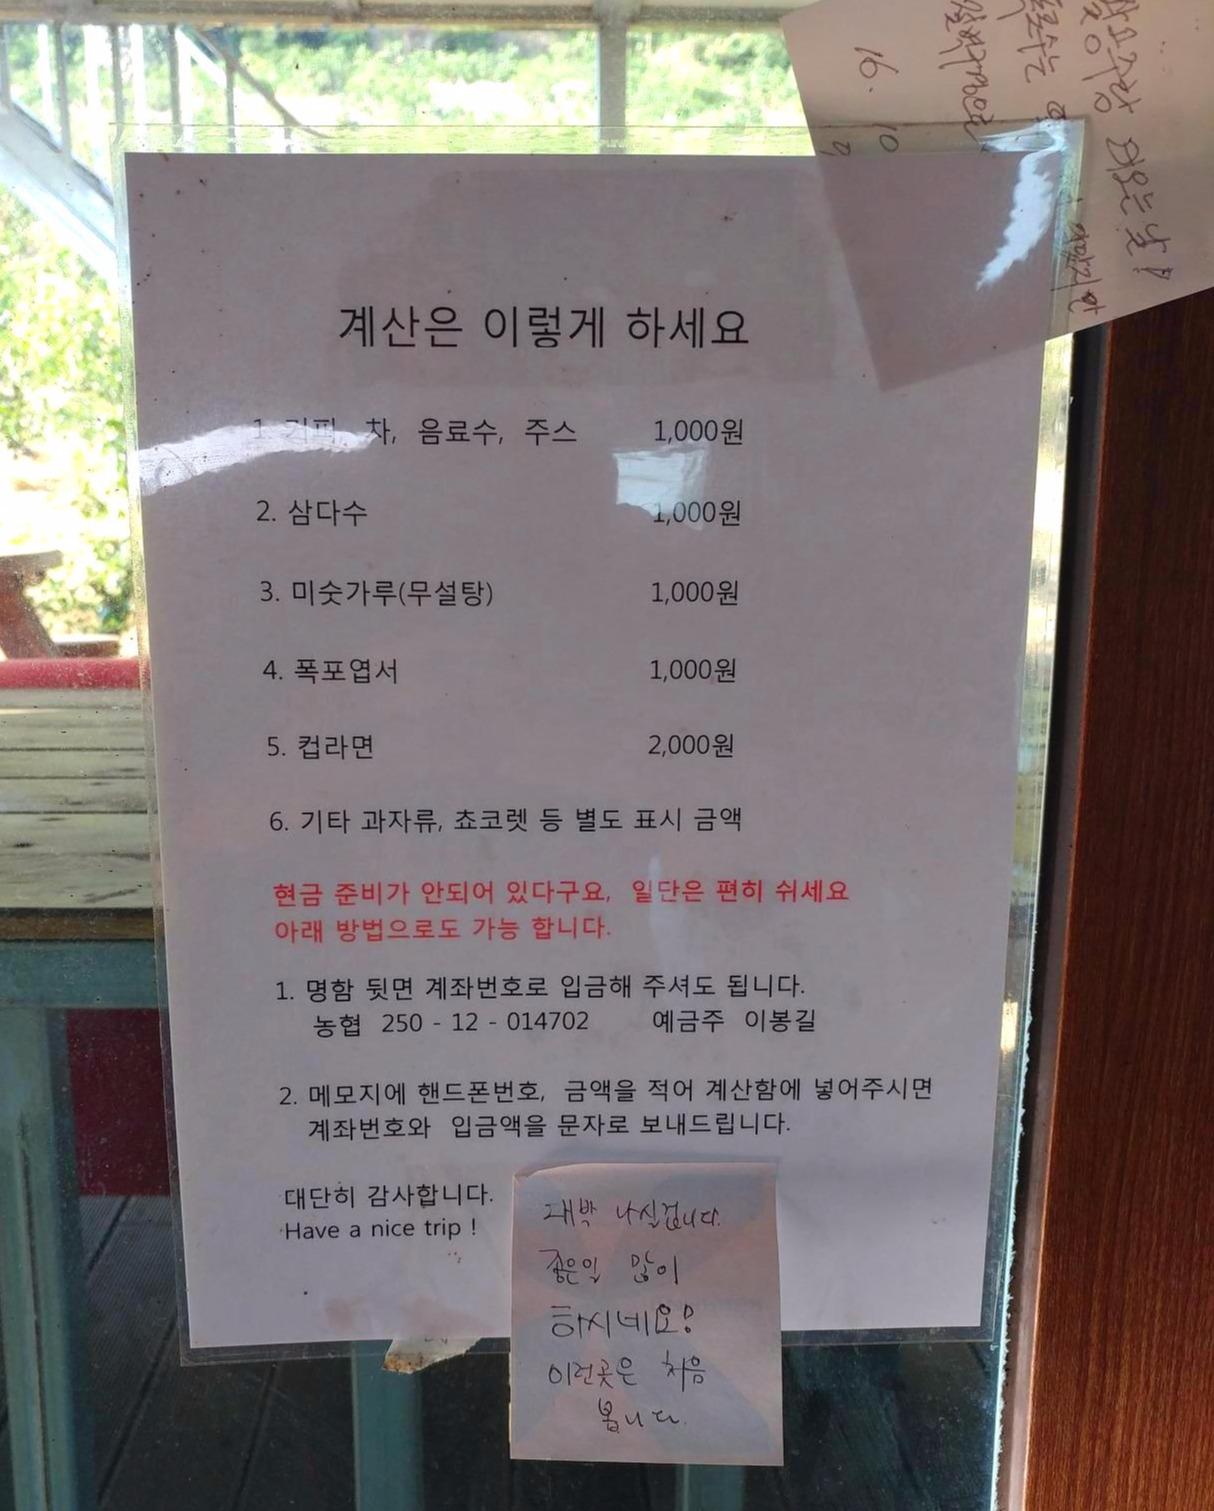 계산은 이렇게 하세요
1. 커피, 차, 음료수, 주스 1,000원
2. 삼다수 1,000원
3. 미숫가루(무설탕) 1,000원
4. 폭포엽서 1,000원
5. 컵라면 2,000원
6. 기타 과자류, 쵸코렛 등 별도 표시 금액
현금 준비가 안되어 있다구요, 일단은 편히 쉬세요
아래 방법으로도 가능 합니다.
1. 명함 뒷면 계좌번호로 입금해 주셔도 됩니다.
농협 250 - 12 - 014702 예금주 이봉길
2. 메모지에 핸드폰번호, 금액을 적어 계산함에 넣어주시면
계좌번호와 입금액을 문자로 보내드립니다.
대단히 감사합니다.
Have a nice trip !
대박 나실겁니다.
좋은일 많이
하시네요!
이런곳은 처음
봅니다.
16. 10